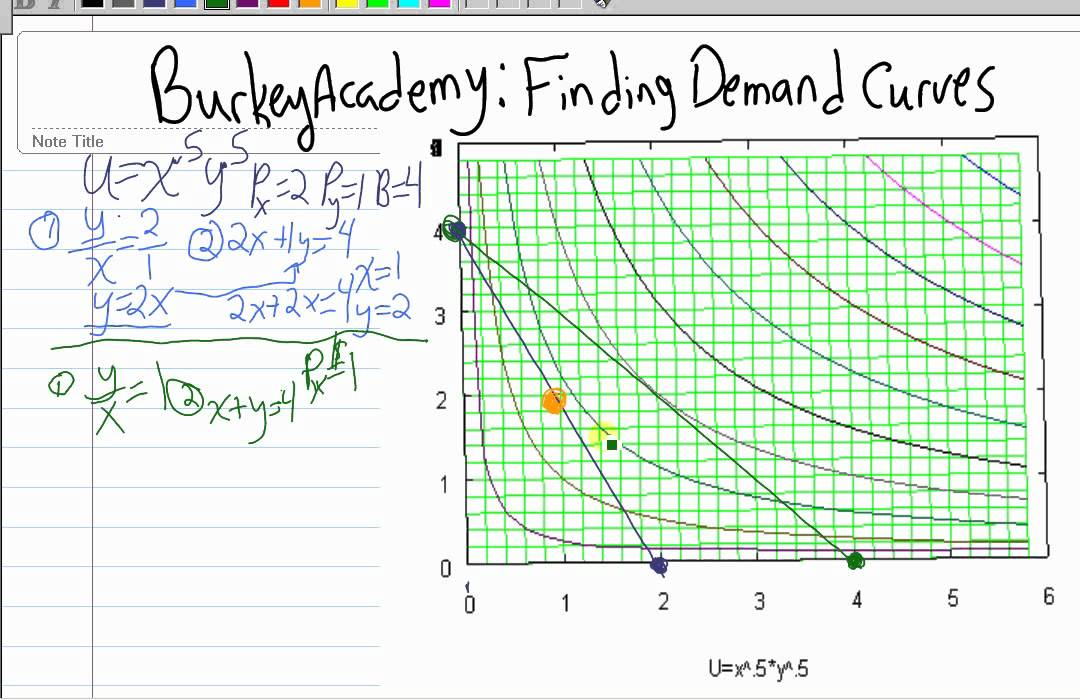 BurkeyAcademy: Finding Demand Curves
Note Title
U=x^.5 y^.5 Px=2 Py=1 B=4
① y/x = 2/1 ② 2x+1y=4
y=2x 2x+2x=4 x=1 y=2
① y/x = 1 ② x+y=4 Px=1
4
3
2
1
0
0 1 2 3 4 5 6
U=x^.5*y^.5